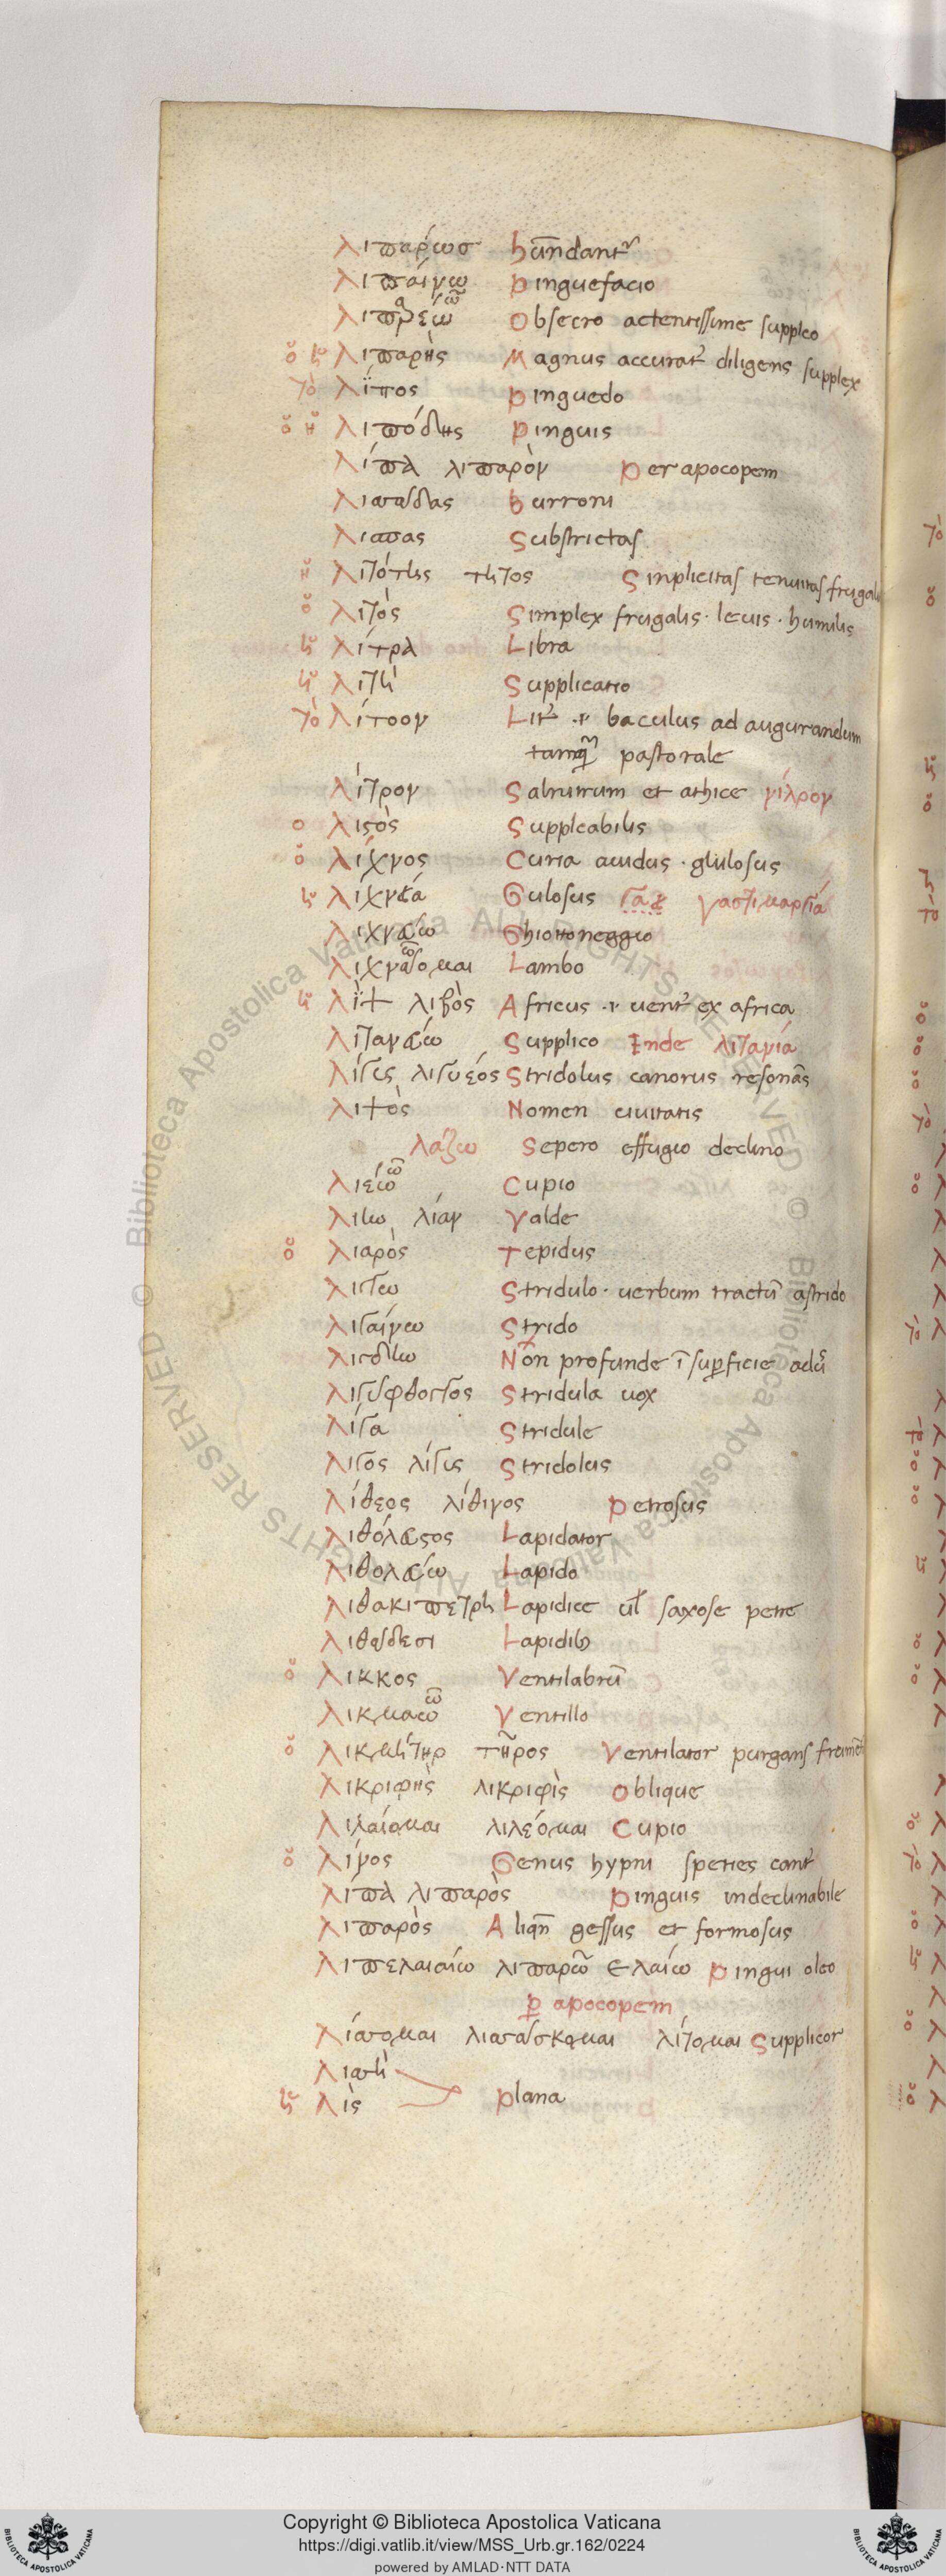 λιπαρέως hūndantr
λιπαίνω Pinguefacio
λιπαρέω ῶ Obsecro actentissime suppleo
ὁ ἡ λιπαρὴς Magnus accurat diligens supplex
τὸ λίπος Pinguedo
ὁ ἡ λιπόδης Pinguis
λίπα λιπαρὸν Per apocopem
Substrictas
ἡ λιτότης τητος Sinplicitas tenuitas frugal
ὁ λιτὸς Simplex frugalis · leuis · humilis
ἡ λίτρα Libra
ἡ λιτὴ Supplicatio
τὸ λίτοον Lit baculus ad augurandum
tamq̄ pastorale
λίτρον Salnitrum et athice νίλρον
ὁ λιςὸς Suppleabilis
ὁ λίχνος Curia auidus · gulosus
ἡ λιχνεία Gulosus γαστιμαργία
λιχνεύω Ghiottoneggio
Lambo
ἡ λὶψ λιβὸς Africus uent ex africa
λιτανεύω Supplico Inde λιτανία
λίγυς λιγυέος Stridolus canorus resonās
λιτὸς Nomen ciuitatis
λάζω Sepero effugio declino
λιέω ῶ Cupio
λίαν Valde
ὁ λιαρὸς Tepidus
λιγεω Stridulo · uerbum tractū astrido
λιγαίνω Strido
Nōn profunde ī superficie adū
λιγυφθογγος Stridula uox
λίγα Stridule
λιγος λίγυς Stridolus
λίθεος λίθινος Petrosus
λιθόλευςος Lapidator
λιθολεύω Lapido
λιθακι πετρη Lapidice ul saxose petre
λιθάδεσι Lapidib
ὁ λικκος Ventilabrū
λικμαω ῶ Ventillo
ὁ λικμητηρ τῆρος Ventilator purgans frumēt
λικριφὴς λικριφὶς Oblique
λιλαίομαι λιλεόμαι Cupio
ὁ λίνος Genus hypni speties cant
λίπα λιπαρὸς Pinguis indeclinabile
λιπαρὸς Aliqn̄ gessus et formosus
λιπελαιαίω λιπαρῶ ελαίω Pingui oleo
p apocopem
λίσσομαι λιτάσκομαι λίτομαι Supplicor
λισσὴ
ἡ λὶς Plana
Copyright © Biblioteca Apostolica Vaticana
https://digi.vatlib.it/view/MSS_Urb.gr.162/0224
powered by AMLAD·NTT DATA